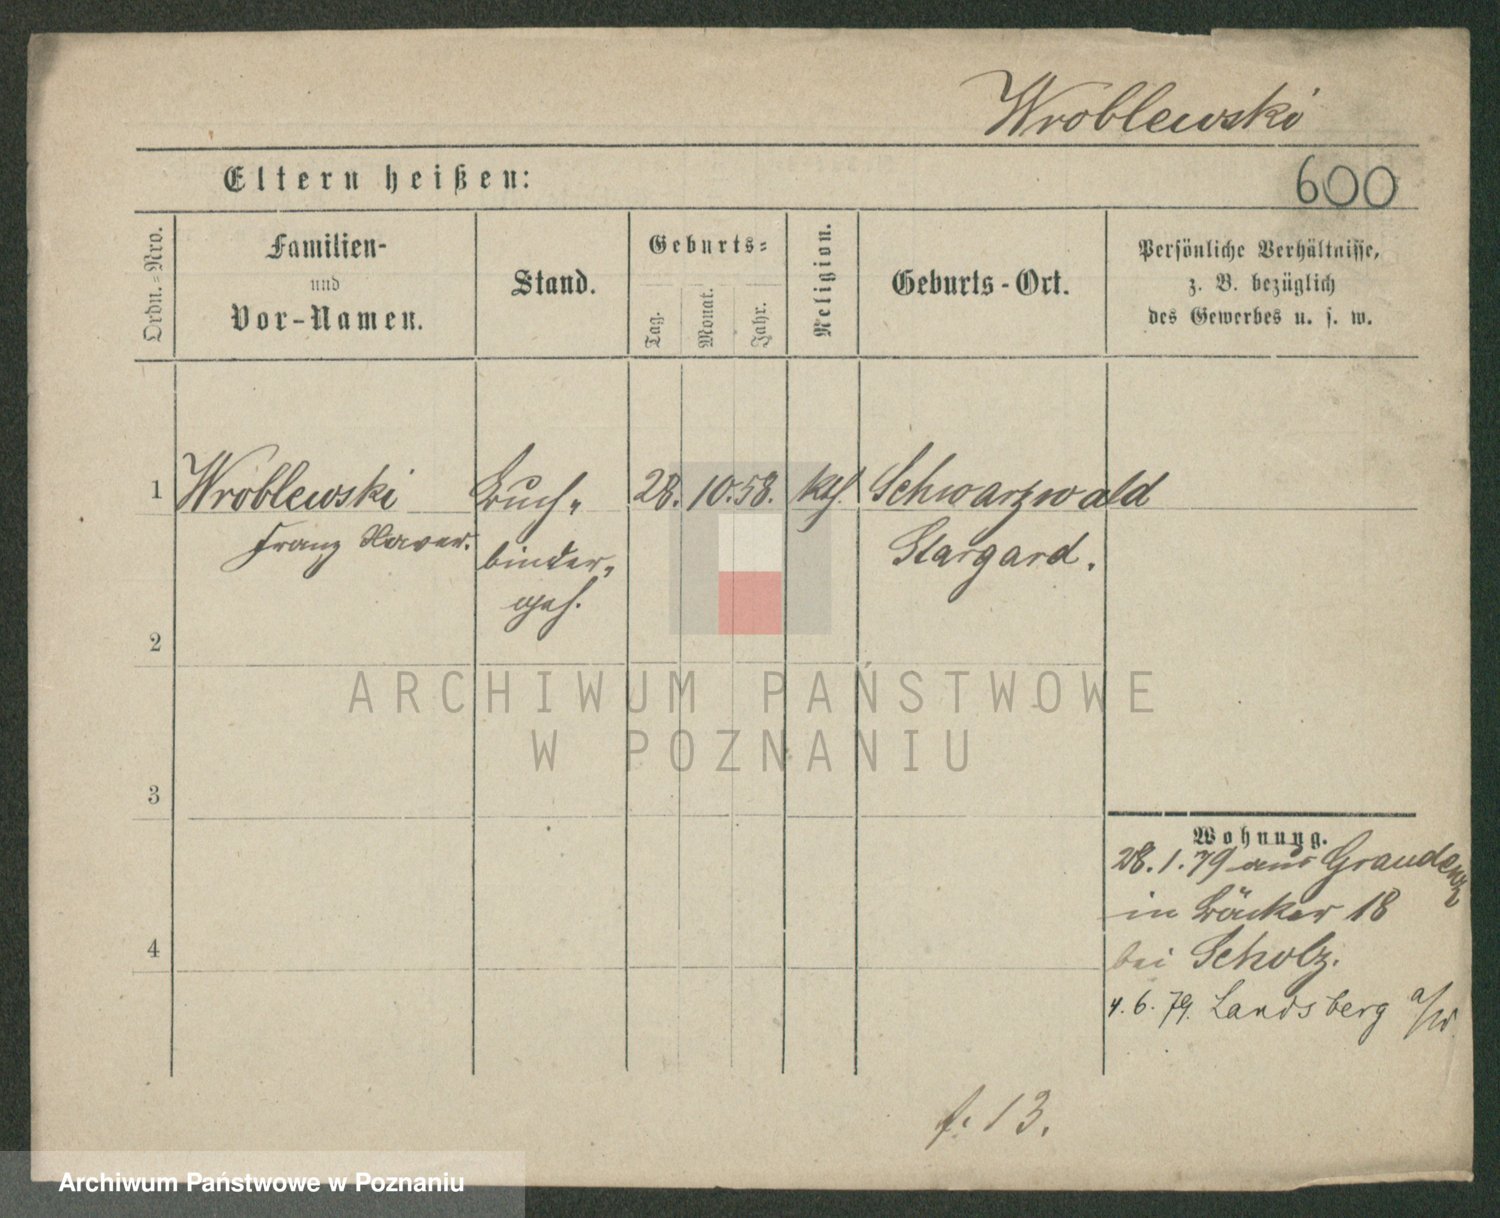 Wroblewski
Eltern heißen:
600
Ordn.-Nro.
Familien-
und
Vor-Namen.
Stand.
Geburts-
Tag.
Monat.
Jahr.
Religion.
Geburts-Ort.
Persönliche Verhältnisse,
z. B. bezüglich
des Gewerbes u. s. w.
1
Wroblewski
Buch-
28. 10. 58.
kth.
Schwarzwald
Franz Xaver.
binder-
Stargard.
geh.
2
ARCHIWUM PAŃSTWOWE
W POZNANIU
3
Wohnung.
28. 1. 79 aus Graudenz
in Bäcker 18
4
bei Scholz.
4. 6. 79. Landsberg a/W
f. 13.
Archiwum Państwowe w Poznaniu